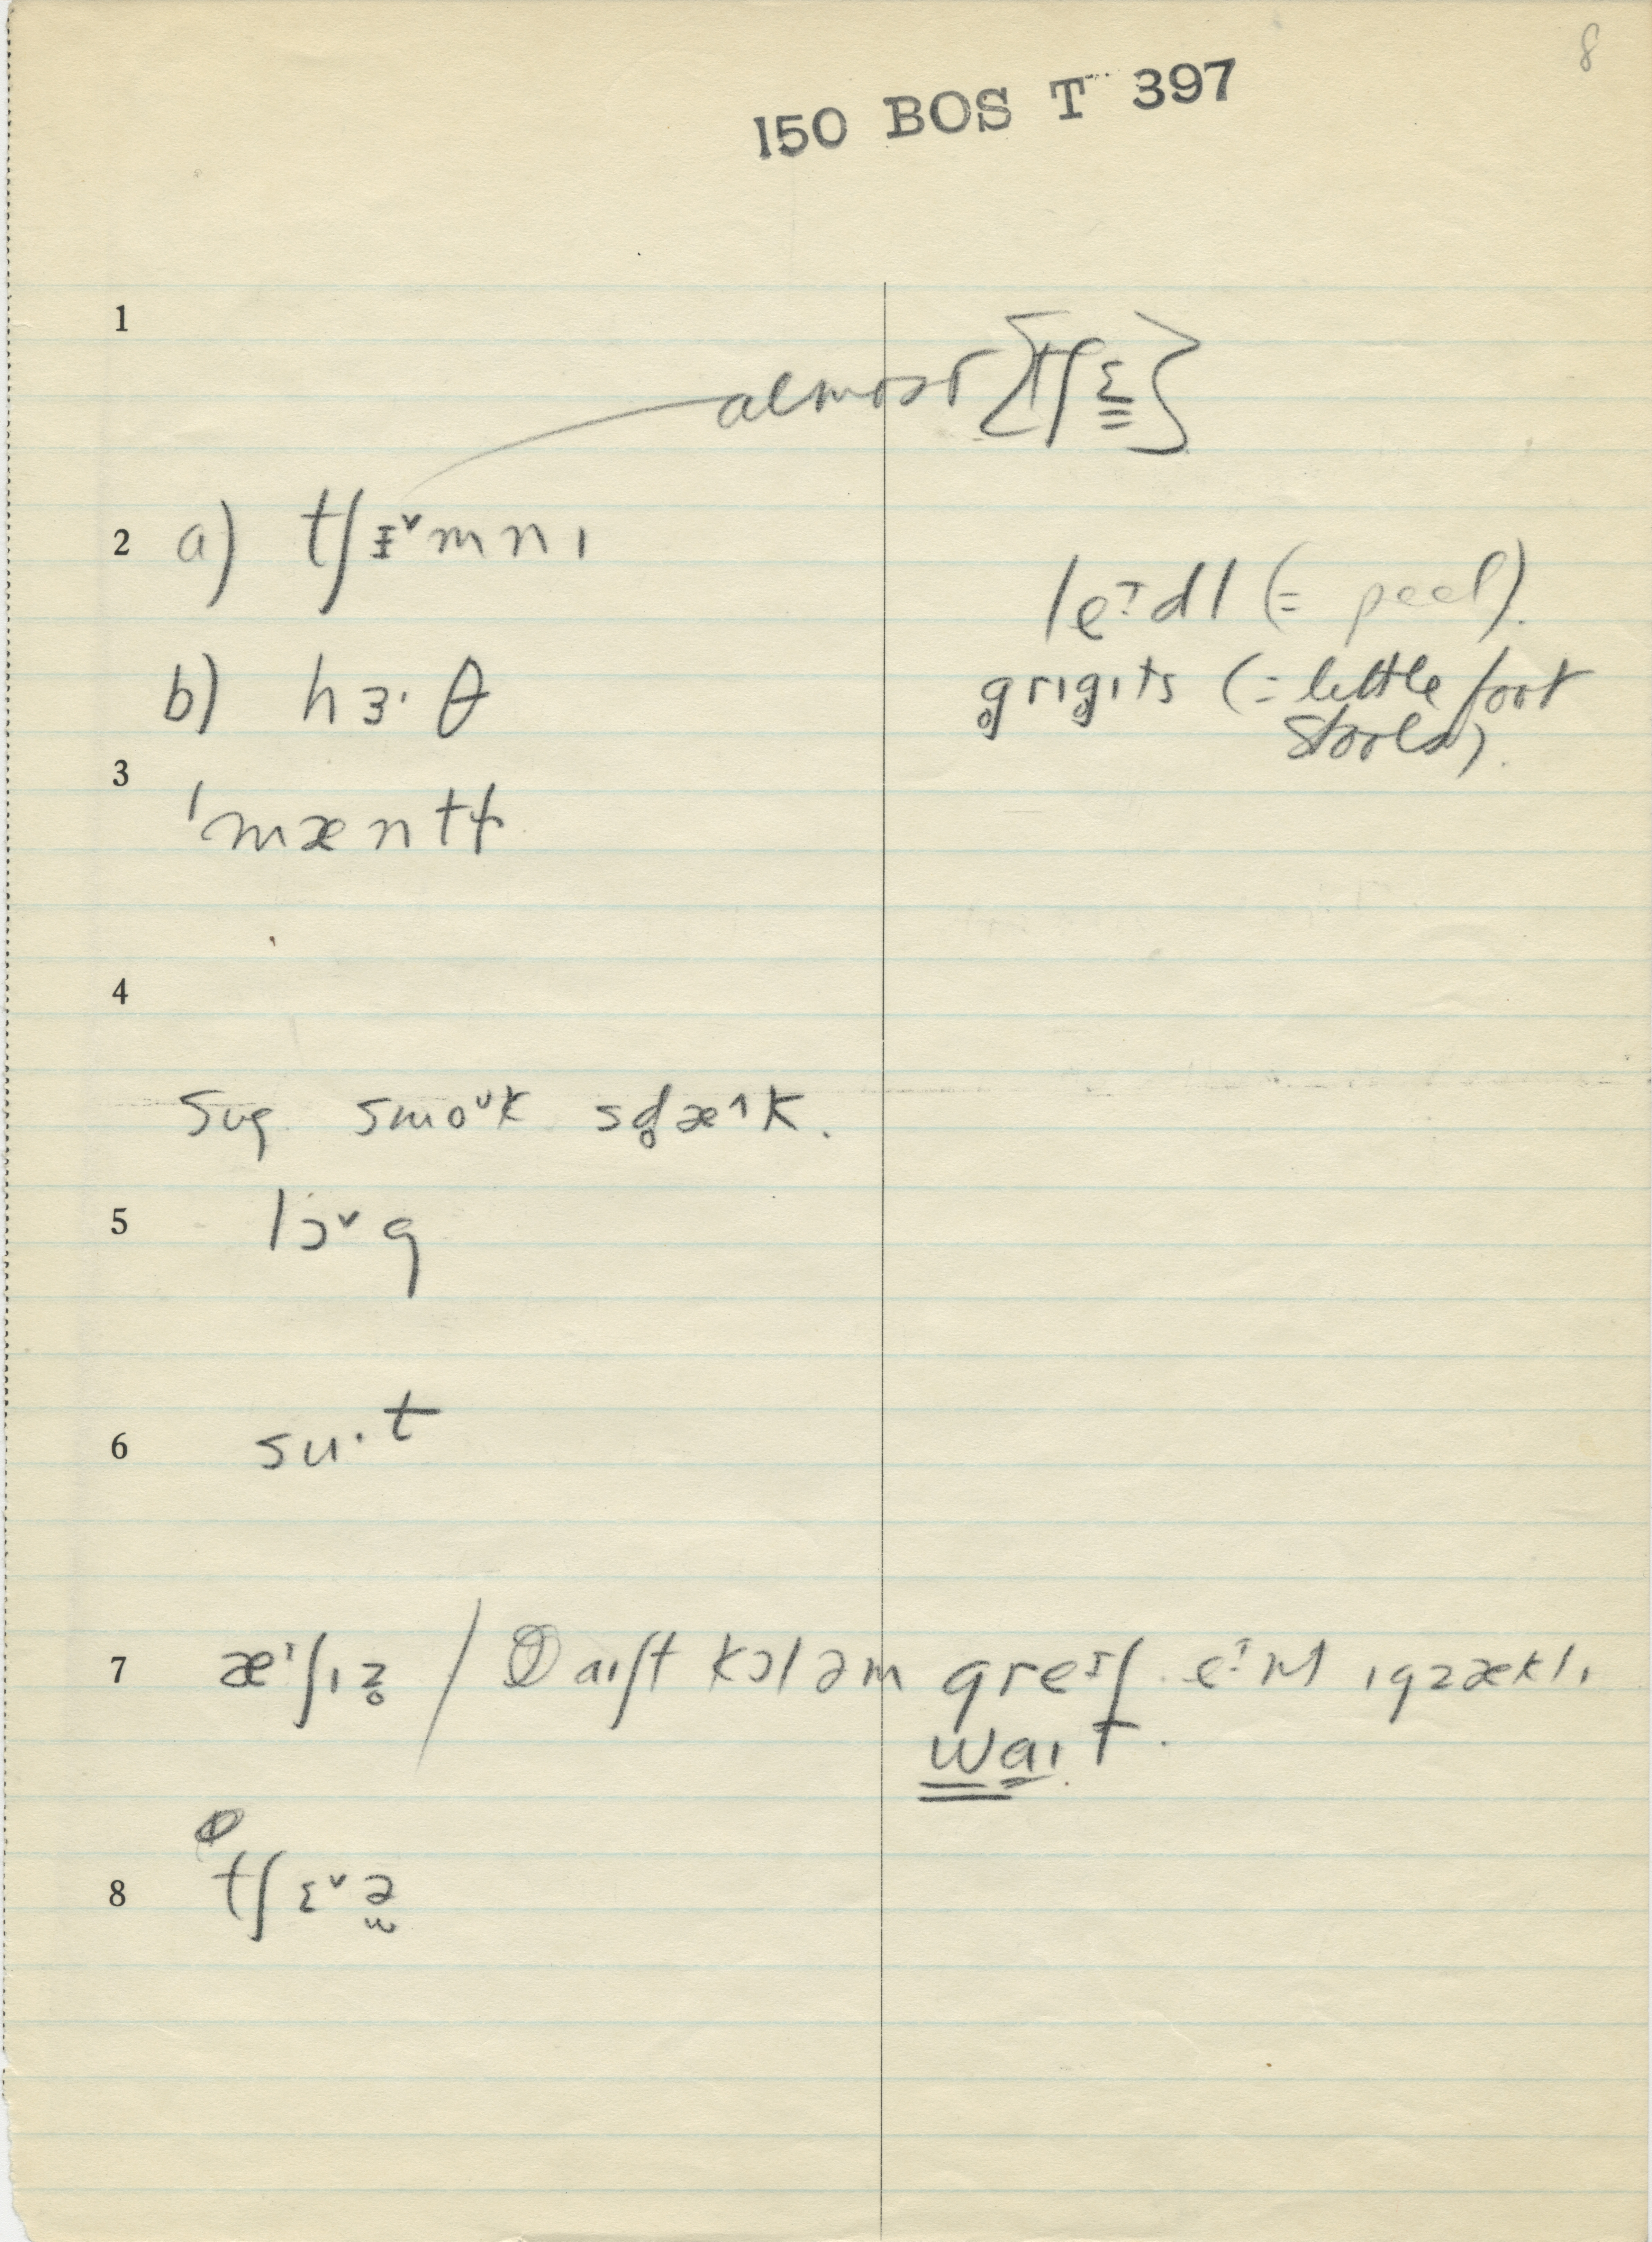 8
150 BOS T 397
1
almost [tʃɛ̳]
2 a) tʃɪ̵ˇmnɪ
leᶦdl (= peel).
b) hɜ·θ
g̥rɪg̥ɪts (= little foot
stools).
3
ˈmæntɫ
4
sʊg smoᵘk sɡ̥æ^k.
5 lɔˇg
6 su·t
7 æᶦʃɪz̥ / aɪʃt kɔləm greᶦʃ
waɪt.
8 tʃɛˇə̯